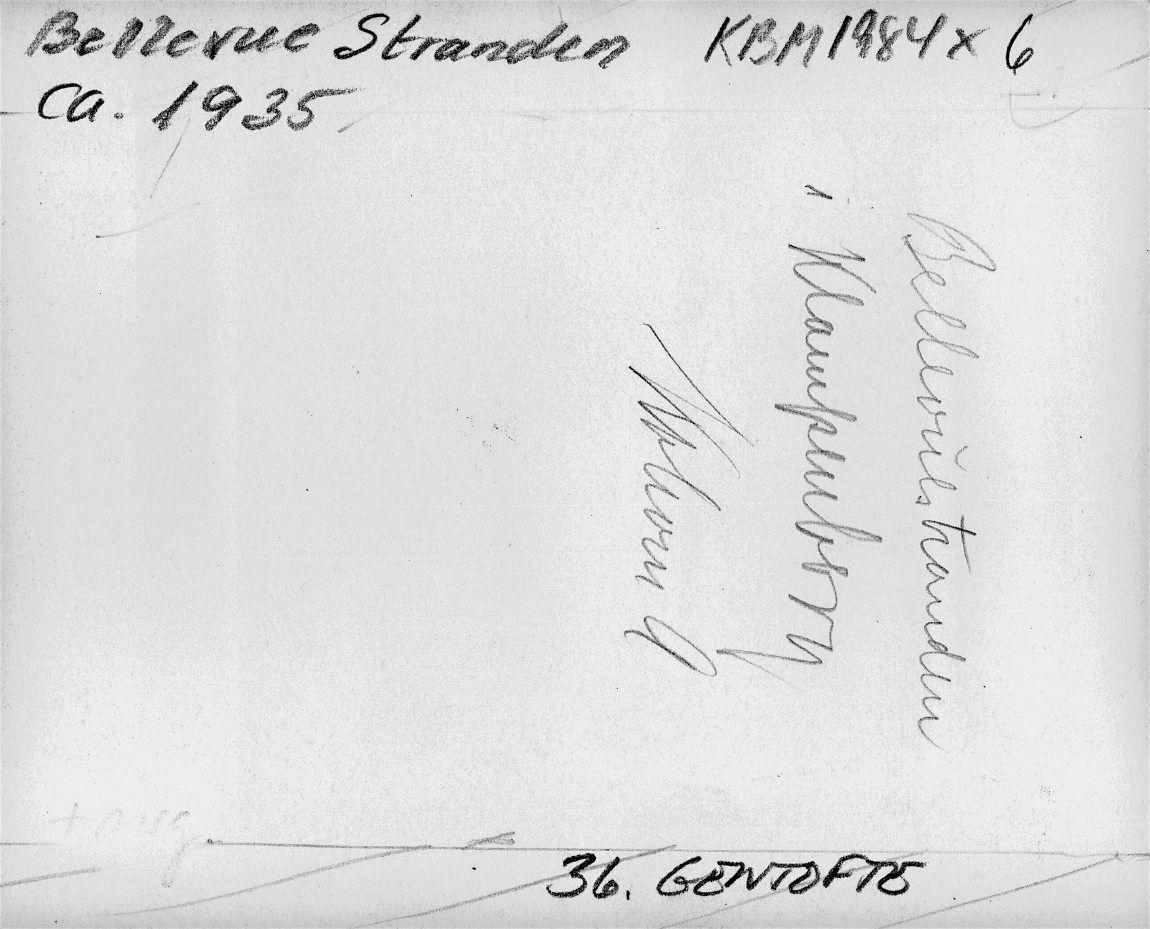 Bellevue Stranden KBM 1984 x 6
ca. 1935
Bellevuestranden
i Klampenborg
36. GENTOFTE